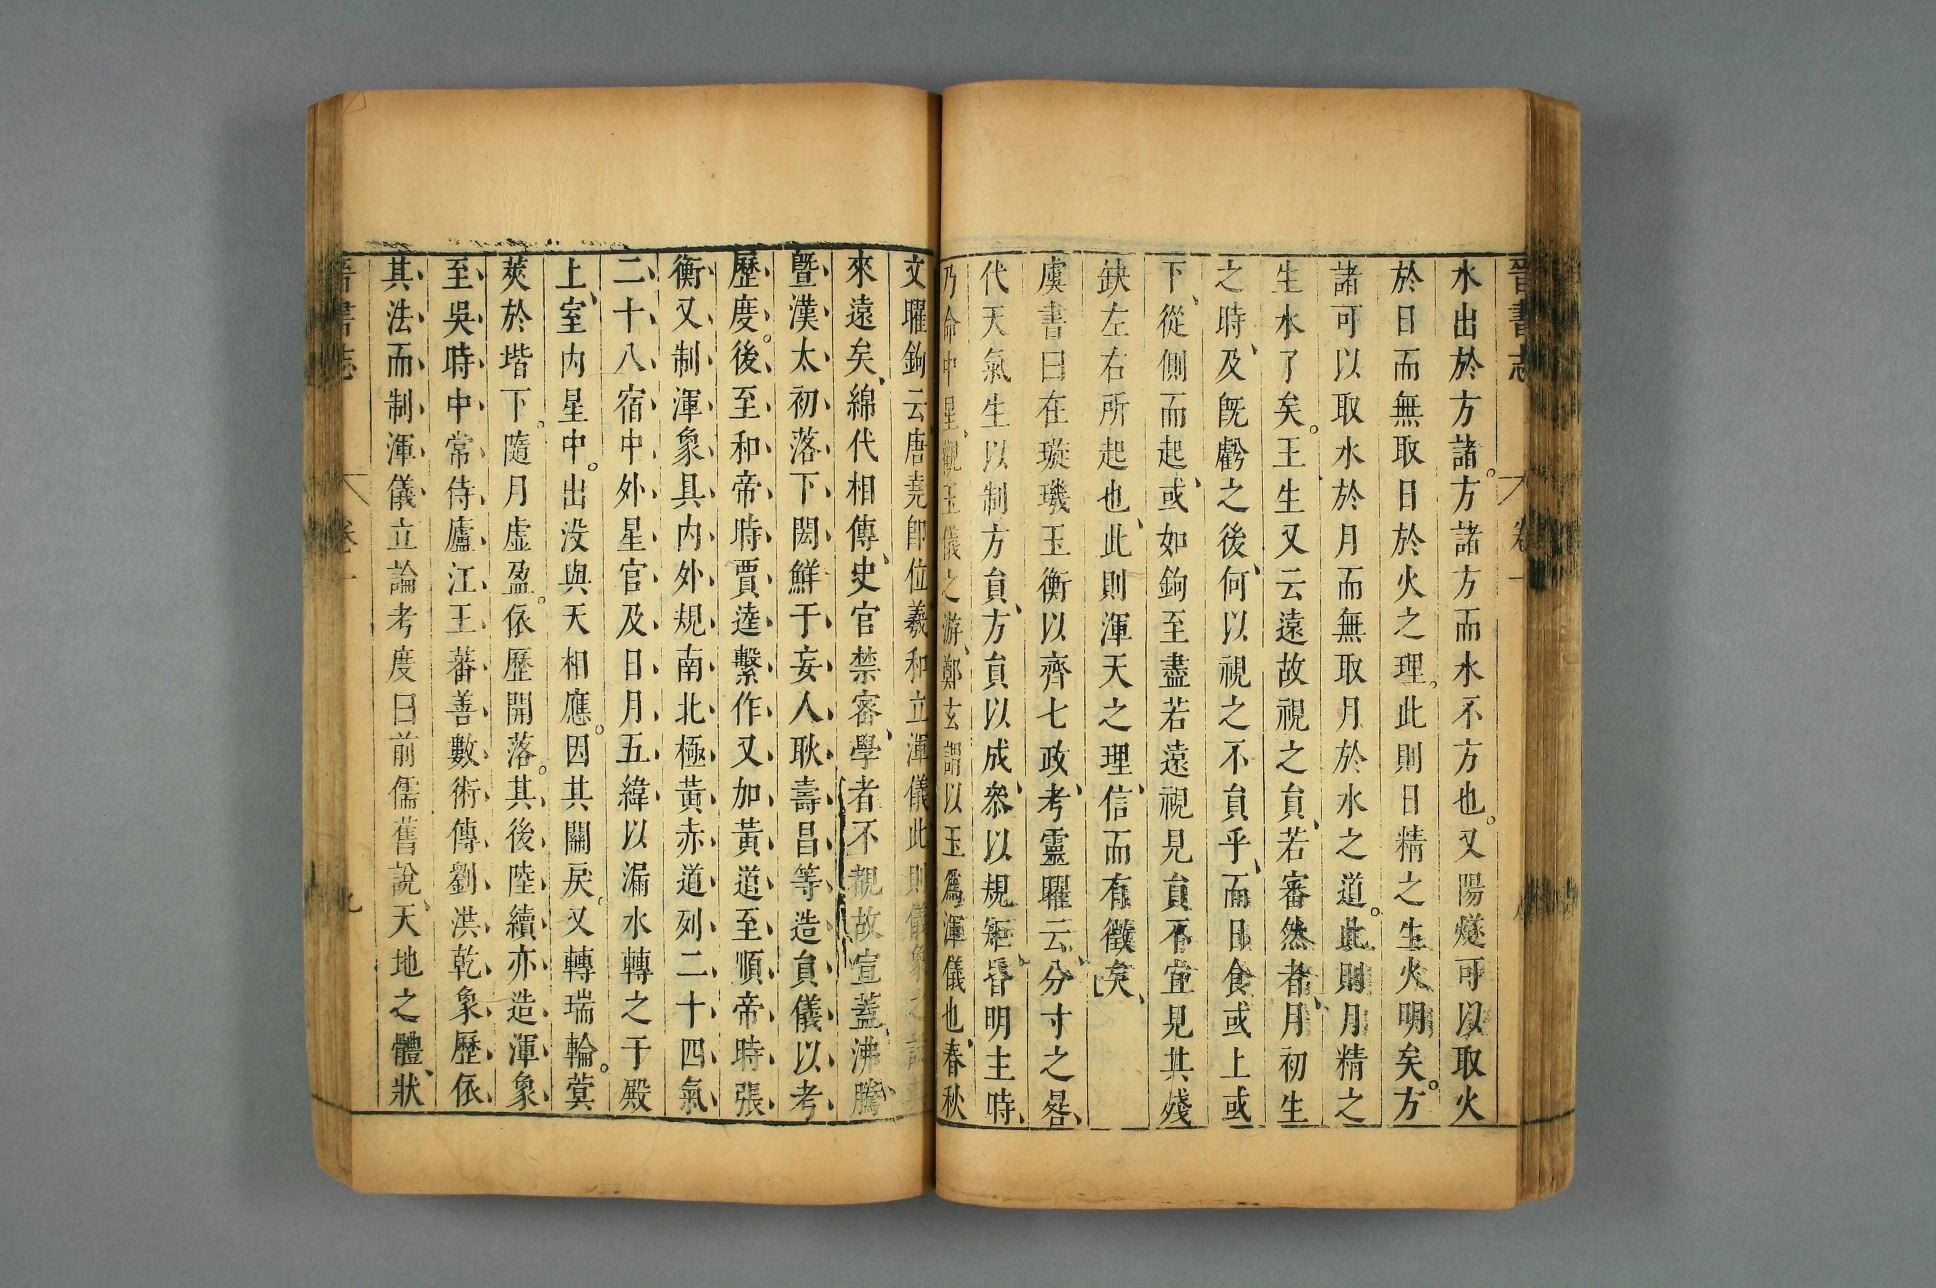 晉書志 卷一
水出於方諸。方諸方而水不方也。又陽燧可以取火
於日而無取日於火之理。此則日精之生火明矣。方
諸可以取水於月而無取月於水之道。此則月精之
生水了矣。王生又云遠故視之貟、若審然者、月初生
之時、及旣虧之後、何以視之不貟乎、而日食或上或
下、從側而起、或如鉤至盡若遠視見貟不宜見其殘
缺左右所起也、此則渾天之理、信而有徵矣、
虞書曰在璇璣玉衡以齊七政、考靈曜云、分寸之晷、
代天氣生以制方貟、方貟以成、叅以規矩、昏明主時、
乃命中星、觀玉儀之游、鄭玄謂以玉爲渾儀也、春秋
文曜鉤云、唐堯卽位羲和立渾儀此則儀象之設
來遠矣、綿代相傳、史官禁審、學者不覩故宣蓋、沸騰、
曁漢太初落下閎鮮于妄人耿壽昌等造貟儀以考
歷度。後至和帝時賈逵繫作又加黃道至順帝時張
衡又制渾象具內外規南北極黃赤道列二十四氣
二十八宿中外星官及日月五緯以漏水轉之于殿
上室內星中。出没與天相應。因其關戾。又轉瑞輪。蓂
莢於堦下。隨月虚盈。依歷開落。其後陸續亦造渾象
至吳時中常侍廬江王蕃善數術傳劉洪乾象歷依
其法而制渾儀立論考度曰前儒舊說、天地之體、狀
晉書志 卷一 九